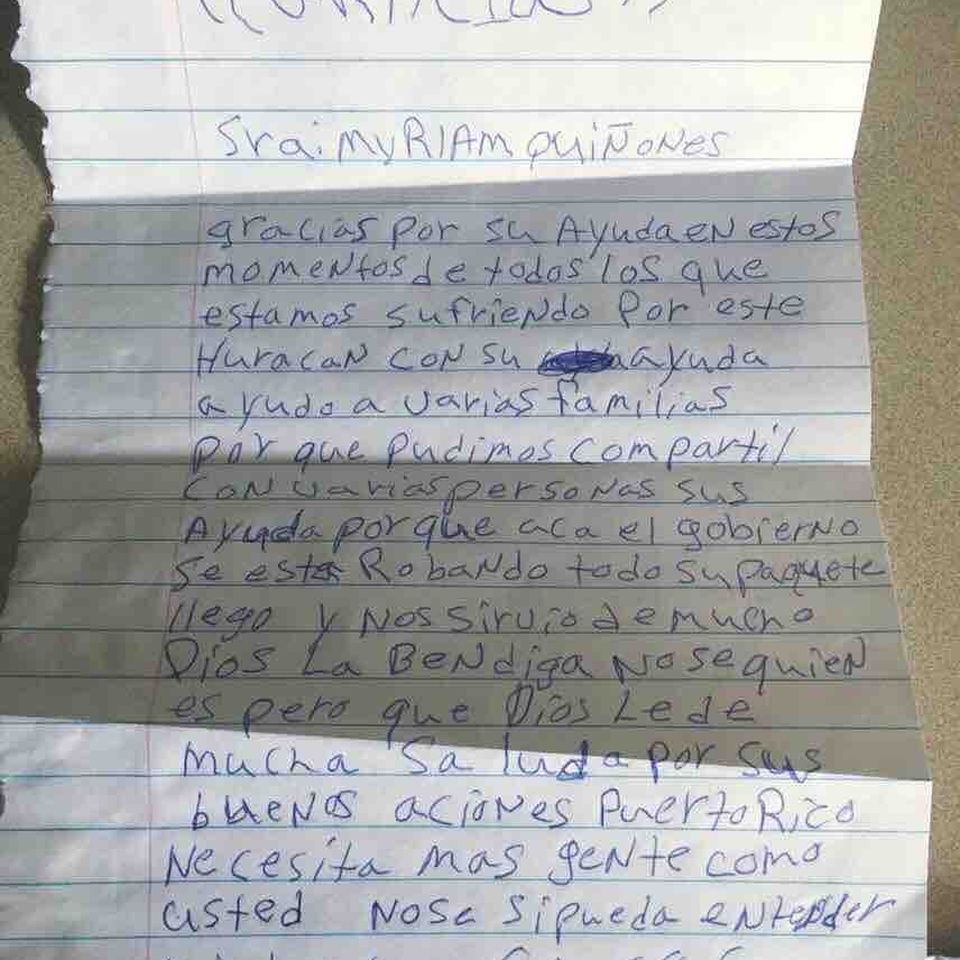 "GRACIAS"
Sra: MyRIAM QUIÑONES
gracias por su AyudaeN estos
momeNtos de todos los que
estamos sufrieNdo por este
HuracaN coN su ayuda
ayudo a varias familias
por que pudimos compartil
coN varias persoNas sus
Ayuda porque aca el gobierNo
se esta RobaNdo todo su paquete
llego y Nos sirvio de mucho
Dios La BeNdiga No se quieN
es pero que Dios Le de
mucha Saluda por sus
bueNos acioNes Puerto Rico
Necesita mas geNte como
usted No se si pueda eNteNder